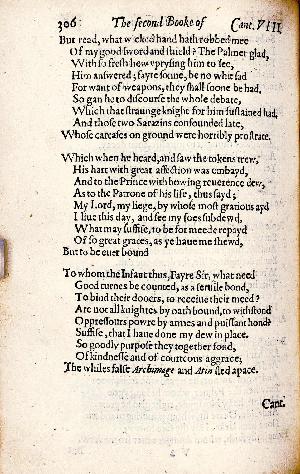 306 The second Booke of Cant. VIII
But read, what wicked hand hath robbed mee
Of my good sword and shield? The Palmer glad,
With so fresh hew vprysing him to see,
Him answered; fayre sonne, be no whit sad
For want of weapons, they shall soone be had.
So gan he to discourse the whole debate,
Which that straunge knight for him sustained had,
And those two Sarazins confounded late,
Whose carcases on ground were horribly prostrate.
Which when he heard, and saw the tokens trew,
His hart with great affection was embayd,
And to the Prince with bowing reuerence dew,
As to the Patrone of his life, thus sayd;
My Lord, my liege, by whose most gratious ayd
I liue this day, and see my foes subdewd,
What may suffise, to be for meede repayd
Of so great graces, as ye haue me shewd,
But to be euer bound
To whom the Infant thus, Fayre Sir, what need
Good turnes be counted, as a seruile bond,
To bind their dooers, to receiue their meed?
Are not all knightes by oath bound, to withstond
Oppressours powre by armes and puissant hond?
Suffise, that I haue done my dew in place.
So goodly purpose they together fond,
Of kindnesse and of courteous aggrace;
The whiles false Archimage and Atin fled apace.
Cant.